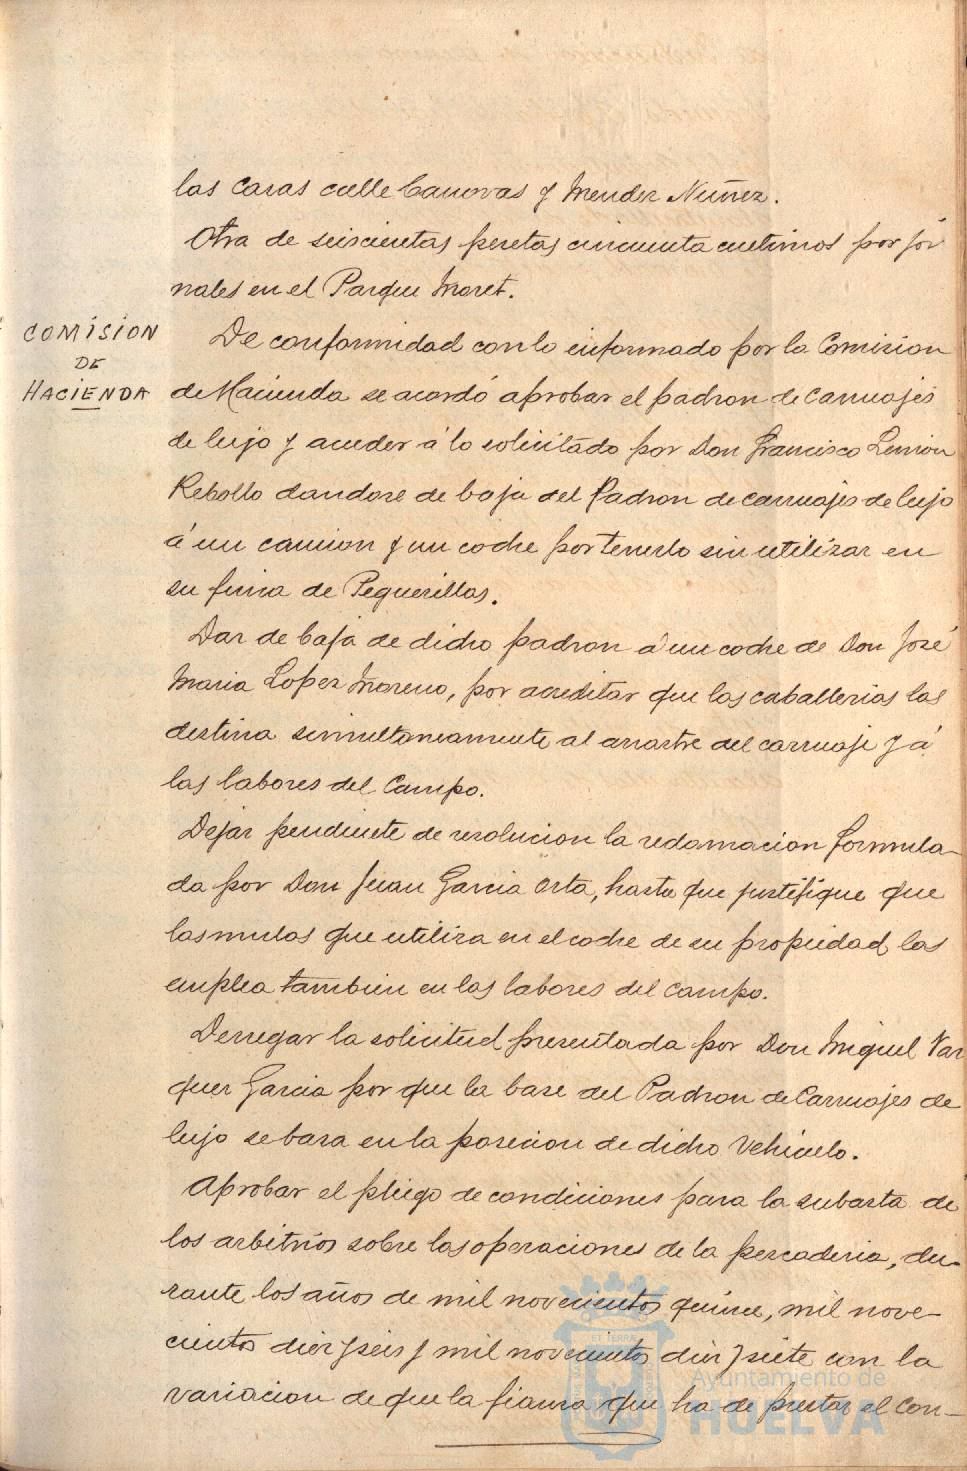 las casas calle Canovas y Mendez Nuñez.
Otra de seiscientas pesetas cincuenta centimos por jor
nales en el Parque Moret.
COMISION
DE
HACIENDA
De conformidad con lo informado por la Comision
de Hacienda se acordó aprobar el padron de carruajes
de lujo y acceder á lo solicitado por Don Francisco Limon
Rebollo dandose de baja del Padron de carruajes de lujo
á un camion y un coche por tenerlo sin utilizar en
su finca de Peguerillas.
Dar de baja de dicho padron á un coche de Don José
Maria Lopez Moreno, por acreditar que las caballerias las
destina simultaneamente al arrastre del carruaje y á
las labores del Campo.
Dejar pendiente de resolucion la reclamacion formula-
da por Don Juan Garcia Orta, hasta que justifique que
las mulas que utiliza en el coche de su propiedad las
emplea tambien en las labores del campo.
Denegar la solicitud presentada por Don Miguel Vaz
quez Garcia por que la base del Padron de Carruajes de
lujo se basa en la posesion de dicho vehiculo.
Aprobar el pliego de condiciones para la subasta de
los arbitrios sobre las operaciones de la pescaderia, du-
rante los años de mil novecientos quince, mil nove-
cientos diez y seis y mil novecientos diez y siete con la
variacion de que la fianza que ha de prestar el con-
ET TERRA
Ayuntamiento de
HUELVA